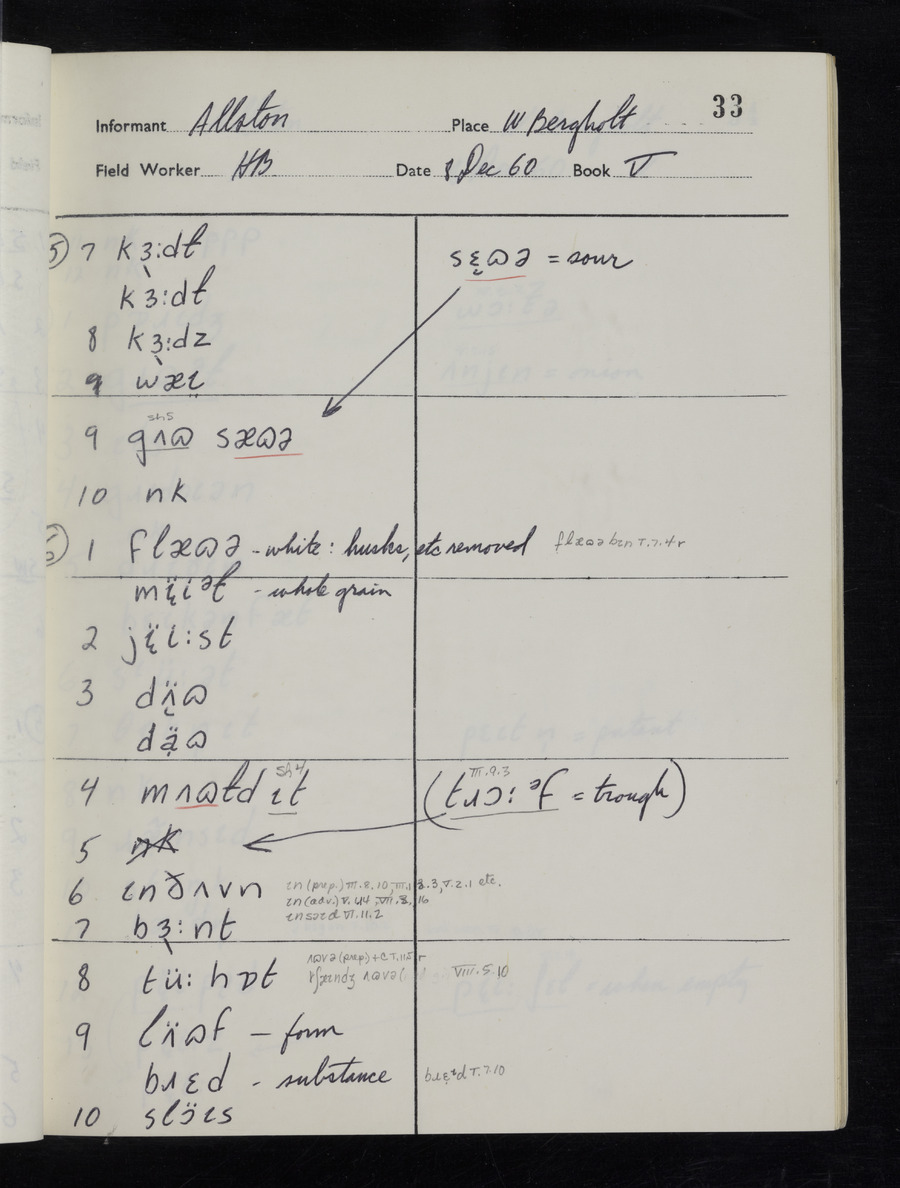 33
Informant Allston Place W Bergholt
Field Worker HB Date 8 Dec 60 Book V
5 7 kɜ:dɫ
kɜ:dɫ
sɛ̣ɷə = sour
8 kɜ:dz
9 wæɪ
sh5
9 gʌɷ sæɷə
10 nk
6 1 flæɷə - white: husks, etc removed flæɷə bɪn V.7.4r
mɪ̈iəɫ - whole grain
2 jɪ̈i:st
3 dʌ̈ɷ
dạ̈ɷ
4 mʌɷɫd ɪt sh4
(tɹɔ:əf = trough) III.9.3
5 nk
6 ɪnðʌvn ɪn (prep.) III.8.10, III.13.3, V.2.1 etc.
ɪn (adv.) V.4.4, VII.8.16
7 bɜ:nt ɪnsaɪd VI.11.2
8 tü: hɒt VIII.5.10
9 lʌ̈ɷf - form
bɹɛd - substance bɹɛd V.7.10
10 slɔ̈ɪs